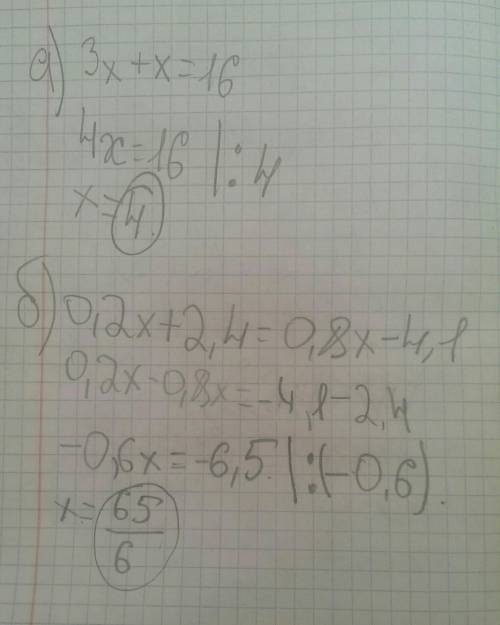 а) 3x+x=16
4x=16 |:4
x=4.
б) 0,2x+2,4=0,8x-4,1
0,2x-0,8x=-4,1-2,4
-0,6x=-6,5. |:(-0,6).
x=65/6